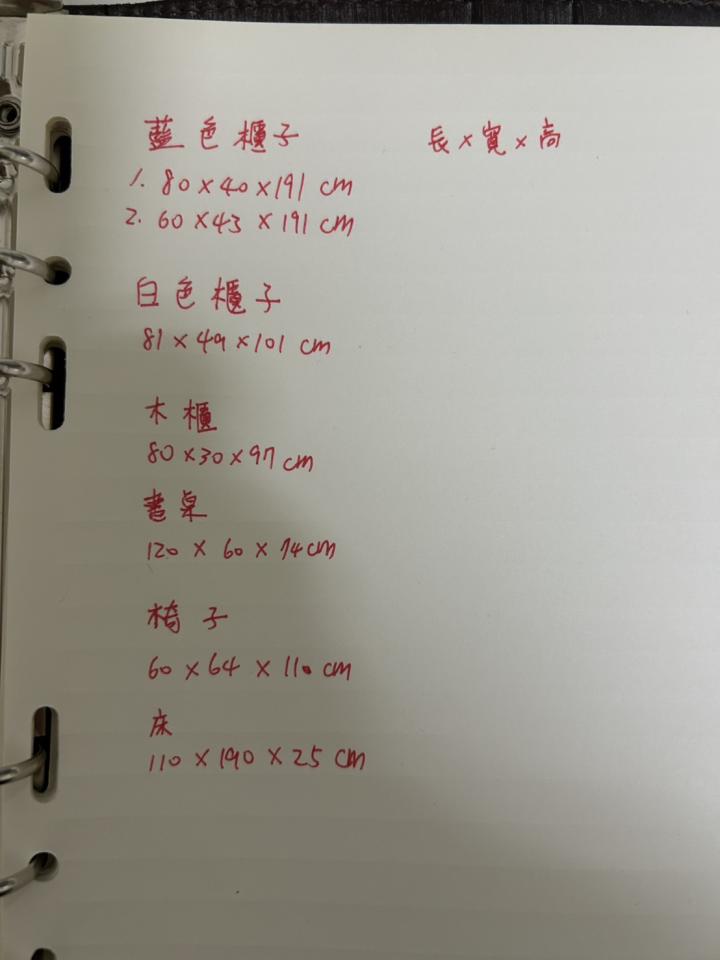 藍色櫃子 長×寬×高
1. 80×40×191 cm
2. 60×43×191 cm
白色櫃子
81×49×101 cm
木櫃
80×30×97 cm
書桌
120×60×74cm
椅子
60×64×110 cm
床
110×190×25 cm